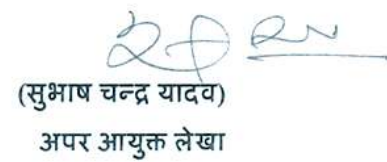 (सुभाष चन्द्र यादव)
अपर आयुक्त लेखा